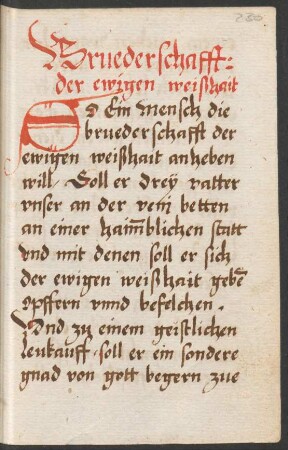 230
Bruederschafft:
der ewigen weißhait
So Ein mensch die
bruederschafft der
ewigen weißhait anheben
will / Soll er drey vatter
vnser an der venj betten
an einer haim̄blichen statt
vnd mit denen soll er sich
der ewigen weißhait gebē
opffern vnnd befelchen.
Vnd zu einem geistlichen
leukauff / soll er ein sondere
gnad von gott begern zue